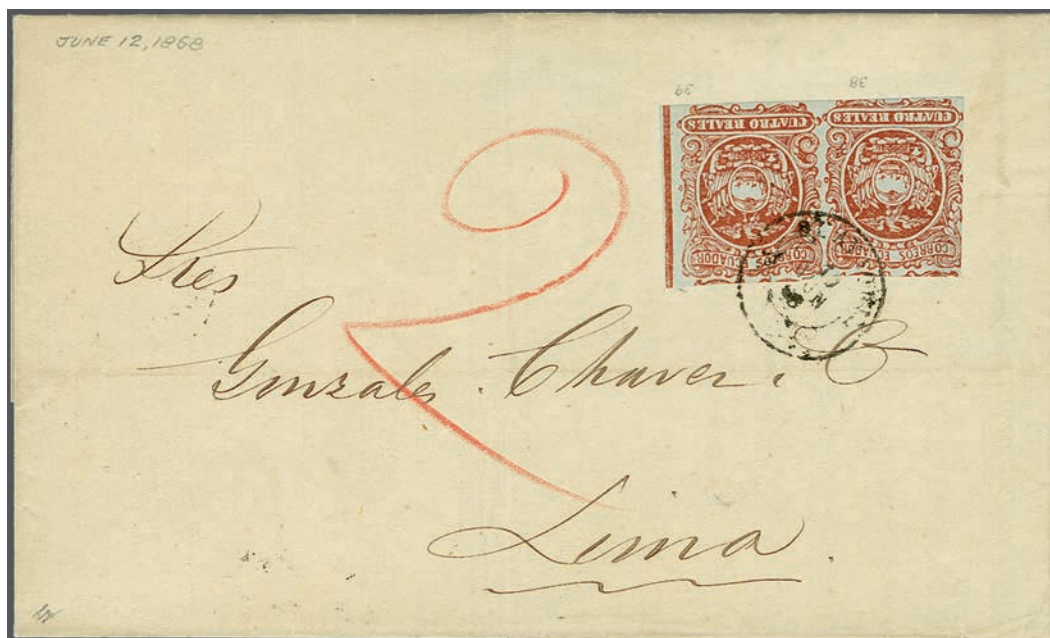 JUNE 12, 1868
39 38
CUATRO REALES CUATRO REALES
CORREOS ECUADOR CORREOS
2
Sres
Gonzales Chavez, C
Lima.